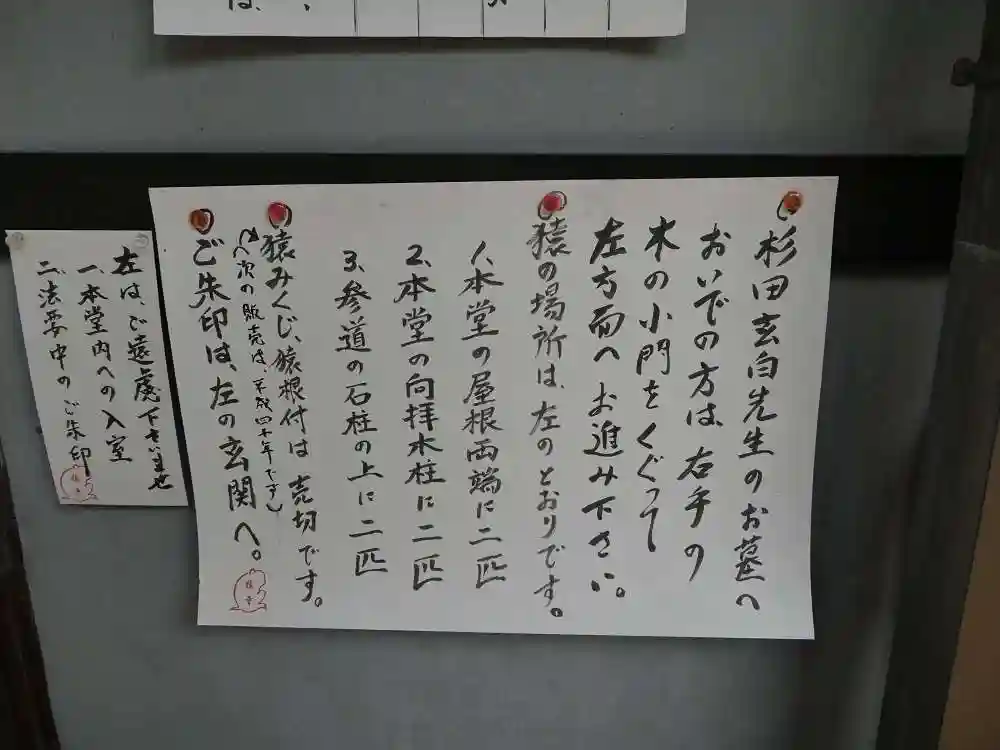 は、
杉田玄白先生のお墓へ
おいでの方は右手の
木の小門をくぐって
左方面へお進み下さい。
猿の場所は、左のとおりです。
1、本堂の屋根両端に二匹
2、本堂の向拝木柱に二匹
3、参道の石柱の上に二匹
猿みくじ、猿根付は売切です。
(次の販売は、平成四十年です)
ご朱印は、左の玄関へ。
左は、ご遠慮下さいませ
一、本堂内への入室
二、法要中のご朱印